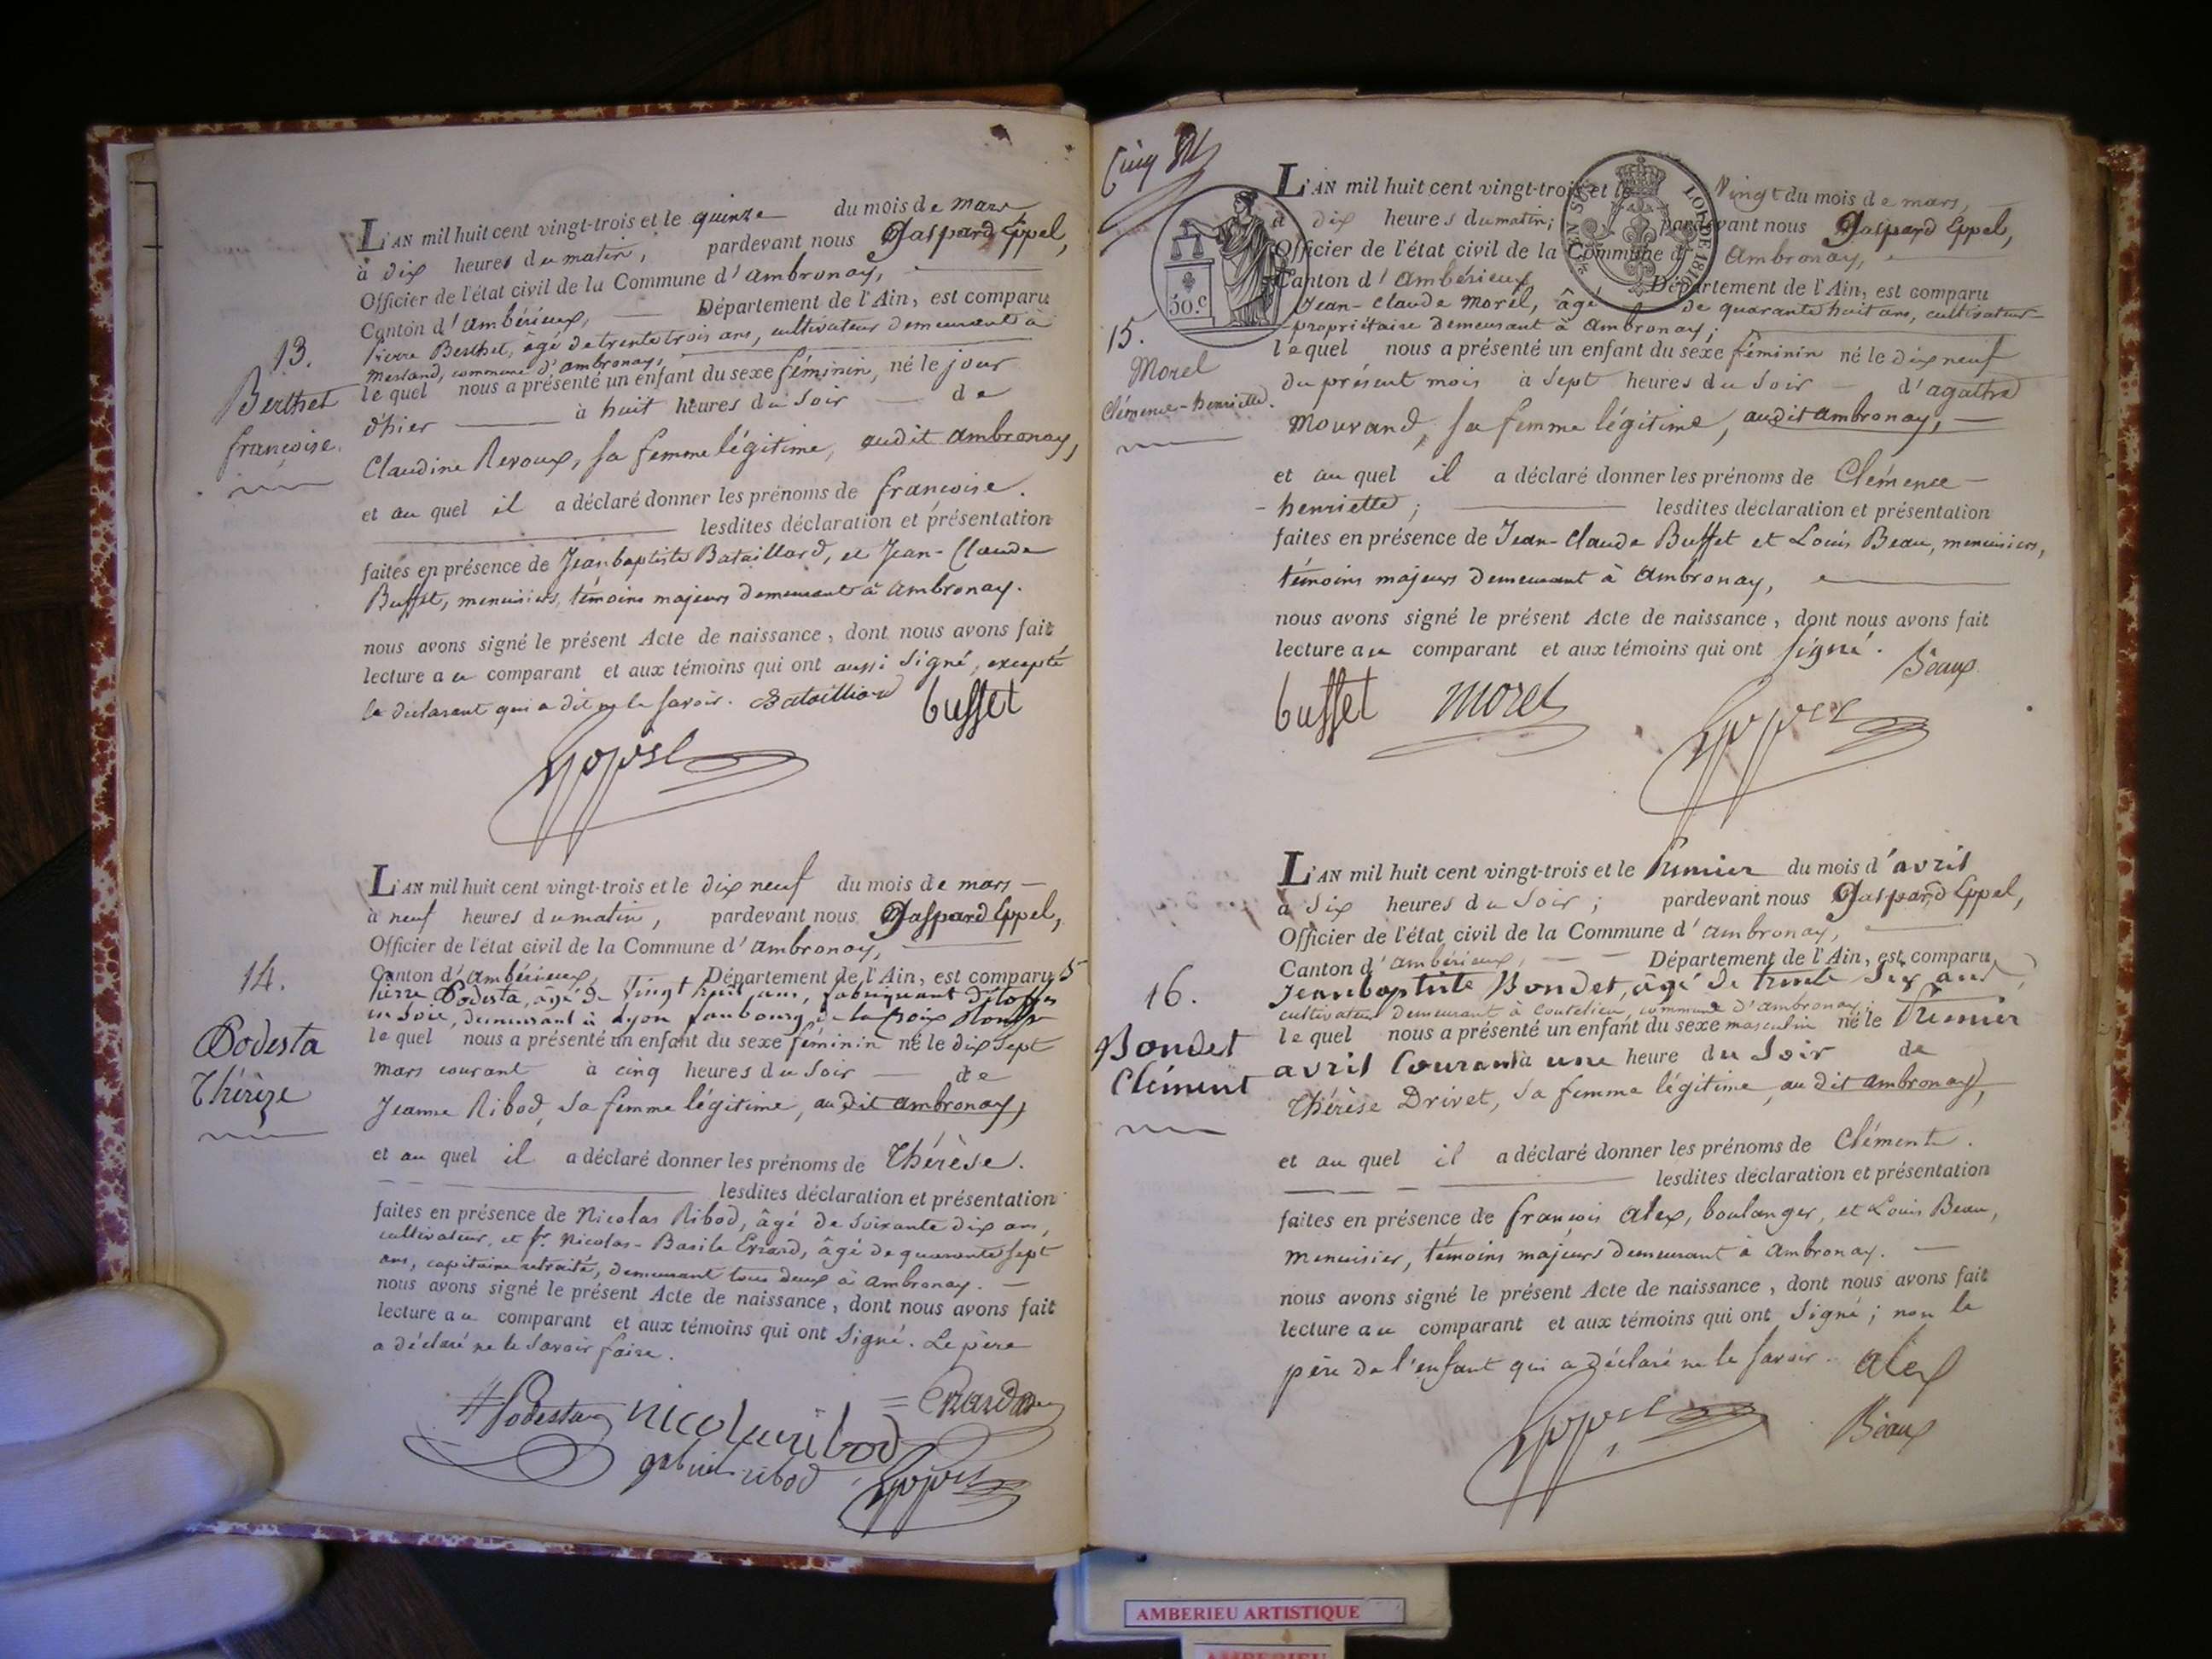 L'AN mil huit cent vingt-trois et le quinze du mois de mars
à dix heures du matin, pardevant nous Gaspard Eppel,
Officier de l'état civil de la Commune d'ambronay,
Canton d'ambérieux, Département de l'Ain, est comparu
Pierre Berthet, âgé de trente trois ans, cultivateur demeurant à
merland, commune d'ambronay,
lequel nous a présenté un enfant du sexe féminin, né le jour
d'hier à huit heures du soir de
Claudine Revoux, sa femme légitime, audit ambronay,
et au quel il a déclaré donner les prénoms de françoise.
lesdites déclaration et présentation
faites en présence de Jean baptiste Bataillard, et Jean-Claude
Buffet, menuisiers, témoins majeurs demeurant à ambronay.
nous avons signé le présent Acte de naissance, dont nous avons fait
lecture au comparant et aux témoins qui ont aussi signé, excepté
le déclarant qui a dit ne le savoir. Bataillard buffet
Eppel
13.
Berthet
françoise.
L'AN mil huit cent vingt-trois et le dix neuf du mois de mars
à neuf heures du matin, pardevant nous Gaspard Eppel,
Officier de l'état civil de la Commune d'ambronay,
Canton d'ambérieux, Département de l'Ain, est comparu
Pierre Podesta, âgé de vingt huit ans, fabriquant d'étoffes
en soie, demeurant à Lyon faubourg de la Croix Rousse
lequel nous a présenté un enfant du sexe féminin né le dix sept
mars courant à cinq heures du soir de
Jeanne Ribod, sa femme légitime, au dit ambronay,
et au quel il a déclaré donner les prénoms de Thérèse.
lesdites déclaration et présentation
faites en présence de Nicolas Ribod, âgé de soixante dix ans,
cultivateur, et fr. Nicolas-Basile Erard, âgé de quarante sept
ans, capitaine retraité, demeurant tous deux à ambronay.
nous avons signé le présent Acte de naissance, dont nous avons fait
lecture au comparant et aux témoins qui ont signé. Le père
a déclaré ne le savoir faire.
Podesta nicola ribod Erard
gabriel ribod Eppel
14.
Podesta
Thérèze
Cinq
L'AN mil huit cent vingt-trois et le Vingt du mois de mars,
à dix heures du matin; pardevant nous Gaspard Eppel,
Officier de l'état civil de la Commune d'Ambronay,
Canton d'Ambérieux Département de l'Ain, est comparu
Jean-Claude Morel, âgé de quarante huit ans, cultivateur
propriétaire demeurant à ambronay;
lequel nous a présenté un enfant du sexe féminin né le dix neuf
du présent mois à sept heures du soir d'agathe
Mourand, sa femme légitime, audit ambronay,
et au quel il a déclaré donner les prénoms de Clémence-
-henriette; lesdites déclaration et présentation
faites en présence de Jean-Claude Buffet et Louis Beau, menuisiers,
témoins majeurs demeurant à ambronay,
nous avons signé le présent Acte de naissance, dont nous avons fait
lecture au comparant et aux témoins qui ont signé.
Béaux
buffet morel Eppel
15.
Morel
Clémence-henriette.
50.c
LOI DE 1816
L'AN mil huit cent vingt-trois et le Premier du mois d'avril
à six heures du soir; pardevant nous Gaspard Eppel,
Officier de l'état civil de la Commune d'ambronay,
Canton d'ambérieux, Département de l'Ain, est comparu
Jean baptiste Bondet, âgé de trente six ans,
cultivateur demeurant à Coutelieu, commune d'ambronay;
lequel nous a présenté un enfant du sexe masculin né le Premier
avril Courant à une heure du soir de
Thérèse Drivet, sa femme légitime, au dit ambronay,
et au quel il a déclaré donner les prénoms de Clément.
lesdites déclaration et présentation
faites en présence de françois alex, boulanger, et Louis Beau,
menuisier, témoins majeurs demeurant à ambronay.
nous avons signé le présent Acte de naissance, dont nous avons fait
lecture au comparant et aux témoins qui ont signé; non le
père de l'enfant qui a déclaré ne le savoir. alex
Eppel Béaux
16.
Bondet
Clément
AMBERIEU ARTISTIQUE
AMBERIEU